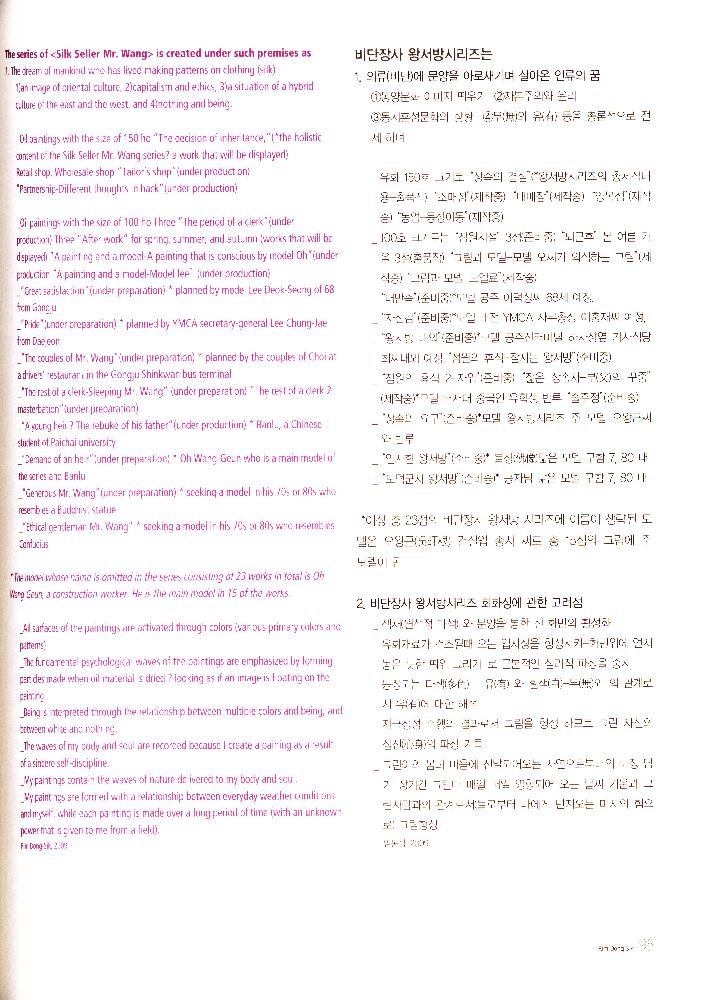 The series of <Silk Seller Mr. Wang> is created under such premises as
1. The dream of mankind who has lived making patterns on clothing (silk)
1)an image of oriental culture, 2)capitalism and ethics, 3)a situation of a hybrid
culture of the east and the west, and 4)nothing and being.
_Oil paintings with the size of 150 ho "The decision of inheritance,"(*the holistic
content of the Silk Seller Mr. Wang series? a work that will be displayed)
Retail shop, Wholesale shop "Tailor's shop"(under production)
"Partnership-Different thoughts in back"(under production)
_Oil paintings with the size of 100 ho Three "The period of a clerk"(under
production) Three "After work" for spring, summer, and autumn (works that will be
displayed) "A painting and a model-A painting that is conscious by model Oh"(under
production "A painting and a model-Model lee" (under production)
_"Great satisfaction"(under preparation) * planned by model Lee Deok-Seong of 68
from Gongju
_"Pride"(under preparation) * planned by YMCA secretary-general Lee Chung-Jae
from Daejeon
_"The couples of Mr. Wang"(under preparation) * planned by the couples of Choi at
a drivers' restaurant in the Gongju Shinkwan bus terminal
_"The rest of a clerk-Sleeping Mr. Wang" (under preparation) "The rest of a clerk 2
masterbation"(under preparation)
_"A young heir ? The rebuke of his father"(under production) * Banlu, a Chinese
student of Paichai university
_"Demand of an heir"(under preparation) * Oh Wang Geun who is a main model of
the series and Banlu
_"Generous Mr. Wang"(under preparation) * seeking a model in his 70s or 80s who
resembles a Buddhist statue
_"Ethical gentleman Mr. Wang" * seeking a model in his 70s or 80s who resembles
Confucius
*The model whose name is omitted in the series consisting of 23 works in total is Oh
Wang Geun, a construction worker. He is the main model in 15 of the works.
_All surfaces of the paintings are activated through colors (various primary colors and
patterns)
_The fundamental psychological waves of the paintings are emphasized by forming
particles made when oil material is dried ? looking as if an image is floating on the
painting
_Being is interpreted through the relationship between multiple colors and being, and
between white and nothing.
_The waves of my body and soul are recorded because I create a paining as a result
of a sincere self-discipline.
_My paintings contain the waves of nature delivered to my body and soul.
_My paintings are formed with a relationship between everyday weather conditions
and myself, while each painting is made over a long period of time (with an unknown
power that is given to me from a field).
Rim Dong-Sik, 2009
비단장사 왕서방시리즈는
1. 의류(비단)에 문양을 아로새기며 살아온 인류의 꿈
①동양문화 이미지 띄우기 ②자본주의와 윤리
③동서혼성문화의 상황 ④무(無)와 유(有) 등을 총론적으로 전
제 하며
유화 150호 크기로 "상속의 결심"(*왕서방시리즈의 총체적내
용-출품작) "소매상"(제작중) "도매점"(제작중) "양복점"(제작
중) "동업-동상이몽"(제작중)
_ 100호 크기로는 "점원시절" 3점(준비중) "퇴근후" 봄 여름 가
을 3점(출품작) "그림과 모델-모델 오씨가 의식하는 그림"(제
작중) "그림과 모델-모델 이"(제작중)
_ "대만족"(준비중)*모델 공주 이덕성씨 68세 예정,
_ "자긍심"(준비중)*모델 대전 YMCA 사무총장 이충재씨 예정,
_ "왕서방 내외"(준비중)*모델 공주신관터미널 기사식당
최씨내외 예정, "점원의 휴식-잠자는 왕서방"(준비중)
_ "점원의 휴식 2-자위"(준비중) "젊은 상속자-부(父)의 꾸중"
(제작중)*모델 배재대 중국인 유학생 반루
_ "상속의 요구"(준비중)*모델 왕서방시리즈 주 모델 오왕근씨
와 반루
_ "인자한 왕서방"(준비중)* 불상(佛像)닮은 모델 구함 7, 80 대
_ "도덕군자 왕서방"(준비중)* 공자님 닮은 모델 구함 7, 80 대
*이상 총 23점의 비단장사 왕서방 시리즈에 이름이 생략된 모
델은 오왕근 건설업 종사 씨로 총 15점의 그림에 주
모델이 됨
2. 비단장사 왕서방시리즈 회화성에 관한 고려점
_ 색채(원색적 다색) 와 문양을 통한 전 화면의 활성화
_ 유화재료가 건조될때 오는 입자성을 형성시키-화면위에 얹져
놓은 듯한 띄워 그리기 로 근본적인 심리적 파장을 중시
_ 등장되는 다색(多色) - 유(有) 와 흰색(白)-무(無)와 의 관계로
서 유(有)에 대한 해석
_ 지극정성 수행의 결과로서 그림을 형성 하므로 그린 자신의
심신(心身)의 파장 기록
_ 그린이의 몸과 마음에 전달되어오는 자연으로부터의 파장 담
기 장기간 그린다 매일 매일 영향되어 오는 날씨 기운과 그
린사람과의 관계로서(들로부터 나에게 던져오는 미지의 힘으
로) 그림형성
임동식, 2009
Rim Dong Sik 95